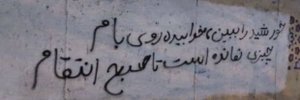 خورشید را ببین، خوابیده روی بام
چیزی نمانده است تا صبح انتقام